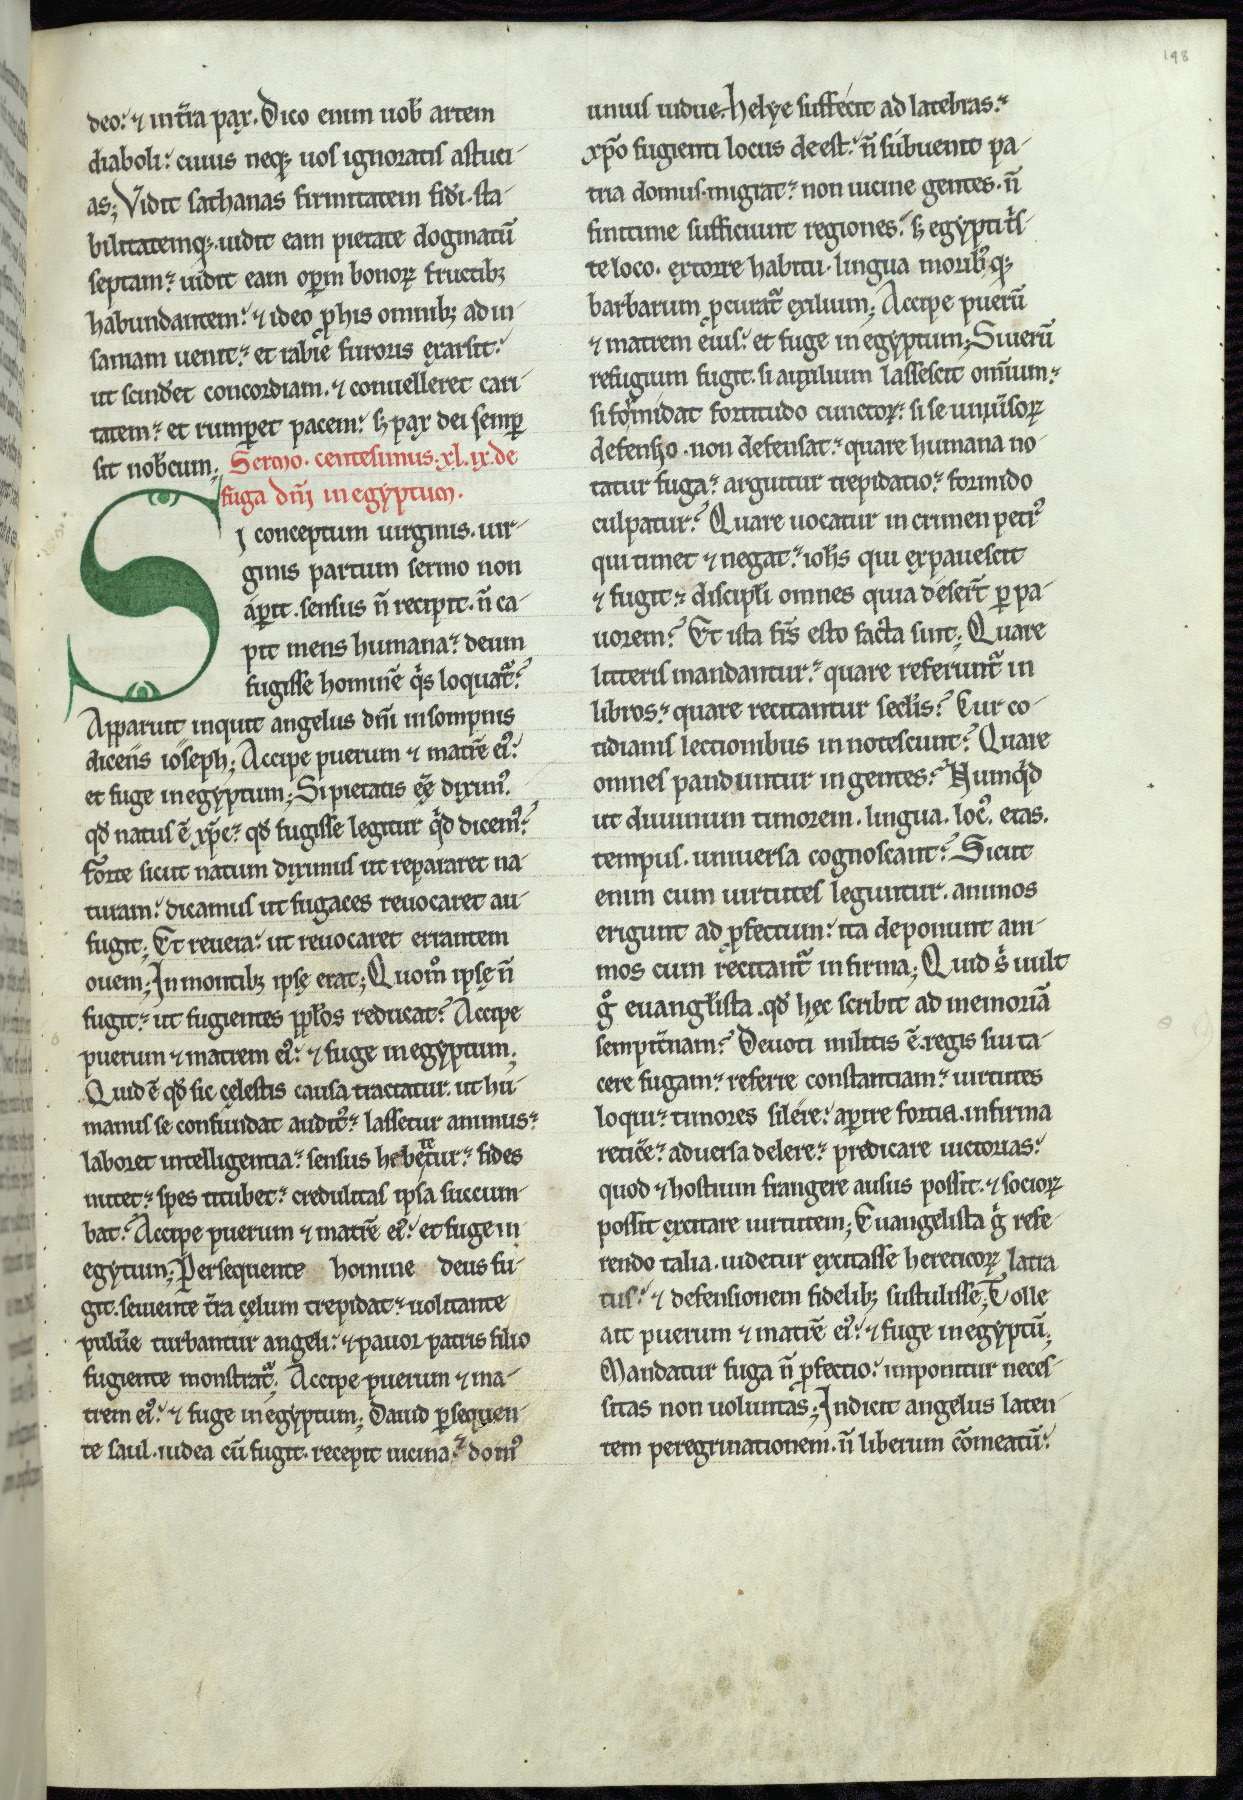 148
deo: ⁊ in t̃ra pax. Dico enim uob̃ artem
diaboli: cuius neq; uos ignoratis astuci-
as; Vidit sathanas firmitatem fidei. sta-
bilitatemq; uidit eam pietate dogmatũ
septam: uidit eam oꝑum bonoꝝ fructib;
habundantem: ⁊ ideo p̱ his omnib; ad in-
saniam uenit: et rabie furoris exarsit:
ut scinderet concordiam. ⁊ conuelleret cari-
tatem: et rumꝑet pacem: s; pax dei semꝑ
sit nobiscum; Sermo. centesimus. xl. ix. de
fuga dñi in egyptum.
Si conceptum uirginis. uir-
ginis partum sermo non
aꝑit. sensus ñ recipit. ñ ca-
pit mens humana: deum
fugisse hominẽ qis loquat̃?
Apparuit inquit angelus dñi in sompnis
dicens ioseph; Accipe puerum ⁊ matrẽ eiꝰ:
et fuge in egyptum; Si pietatis eẽ diximꝰ.
qđ natus ẽ xp̃c: qđ fugisse legitur qid dicemꝰ?
Forte sicut natum diximus ut repararet na-
turam: dicamus ut fugaces reuocaret au-
fugit; Et reuera: ut reuocaret errantem
ouem; In montib; ipse erat; Quom̊ ipse ñ
fugit: ut fugientes pp̃los reducat? Accipe
puerum ⁊ matrem eiꝰ: ⁊ fuge in egyptum;
Quid ẽ qđ sic celestis causa tractatur. ut hu-
manus se confundat auditꝰ: lassetur animus:
laboret intelligentia: sensus hebetetur: fides
nutet: spes titubet: credulitas ipsa succum-
bat: Accipe puerum ⁊ matrẽ eiꝰ: et fuge in
egytum; Persequente homine deus fu-
git. seuiente t̃ra celum trepidat: uolitante
puluere turbantur angeli: ⁊ pauor patris filio
fugiente monstrat̃. Accipe puerum ⁊ ma-
trem eiꝰ: ⁊ fuge in egyptum; Dauid ꝑsequen-
te saul. iudea cũ fugit. recepit uicina: domꝰ
unius uidue. helye suffecit ad latebras:
xp̃o fugienti locus deest: ñ subuenit pa-
tria domus. migrat: non uicine gentes. ñ
finitime sufficiunt regiones: s; egypti tris-
te loco. extorre habitu. lingua morib;q;
barbarum ꝓcurat̃ exilium; Accipe puerũ
⁊ matrem eius: et fuge in egyptum; Si uerũ
refugium fugit. si auxilium lassescit omnium:
si formidat fortitudo cunctoꝝ: si se uniuersoꝝ
defensio. non defensat: quare humana no-
tatur fuga: arguitur trepidatio: formido
culpatur? Quare uocatur in crimen petrꝰ
qui timet ⁊ negat: ioh̃s qui expauescit
⁊ fugit: discipli omnes quia deserit̃ ꝑ pa-
uorem? Et ista fr̃s esto facta sunt; Quare
litteris mandantur: quare referunt̃ in
libros: quare recitantur seclis? Cur co-
tidianis lectionibus innotescunt? Quare
omnes panduntur in gentes? Numqid
ut diuinum timorem. lingua. locꝰ. etas.
tempus. uniuersa cognoscant? Sicut
enim cum uirtutes leguntur. animos
erigunt ad ꝓfectum: ita deponunt ani-
mos cum recitant̃ infirma; Quid s̃ uult
g̊ euangl̃ista. qđ hec scribit ad memoriã
sempit̃nam? Deuoti militis ẽ. regis sui ta-
cere fugam: referre constantiam: uirtutes
loqui: timores silere: aꝑire fortia. infirma
reticere: aduersa delere: predicare uictorias:
quod ⁊ hostium frangere ausus possit. ⁊ socioꝝ
possit excitare uirtutem; Euangelista g̊ refe-
rendo talia. uidetur excitasse hereticoꝝ latra
tus: ⁊ defensionem fidelib; sustulisse; Tolle
ait puerum ⁊ matrẽ eiꝰ: ⁊ fuge in egyptũ;
Mandatur fuga ñ ꝓfectio: imponitur neces-
sitas non uoluntas; Indicit angelus laten-
tem peregrinationem. ñ liberum cõmeatũ: